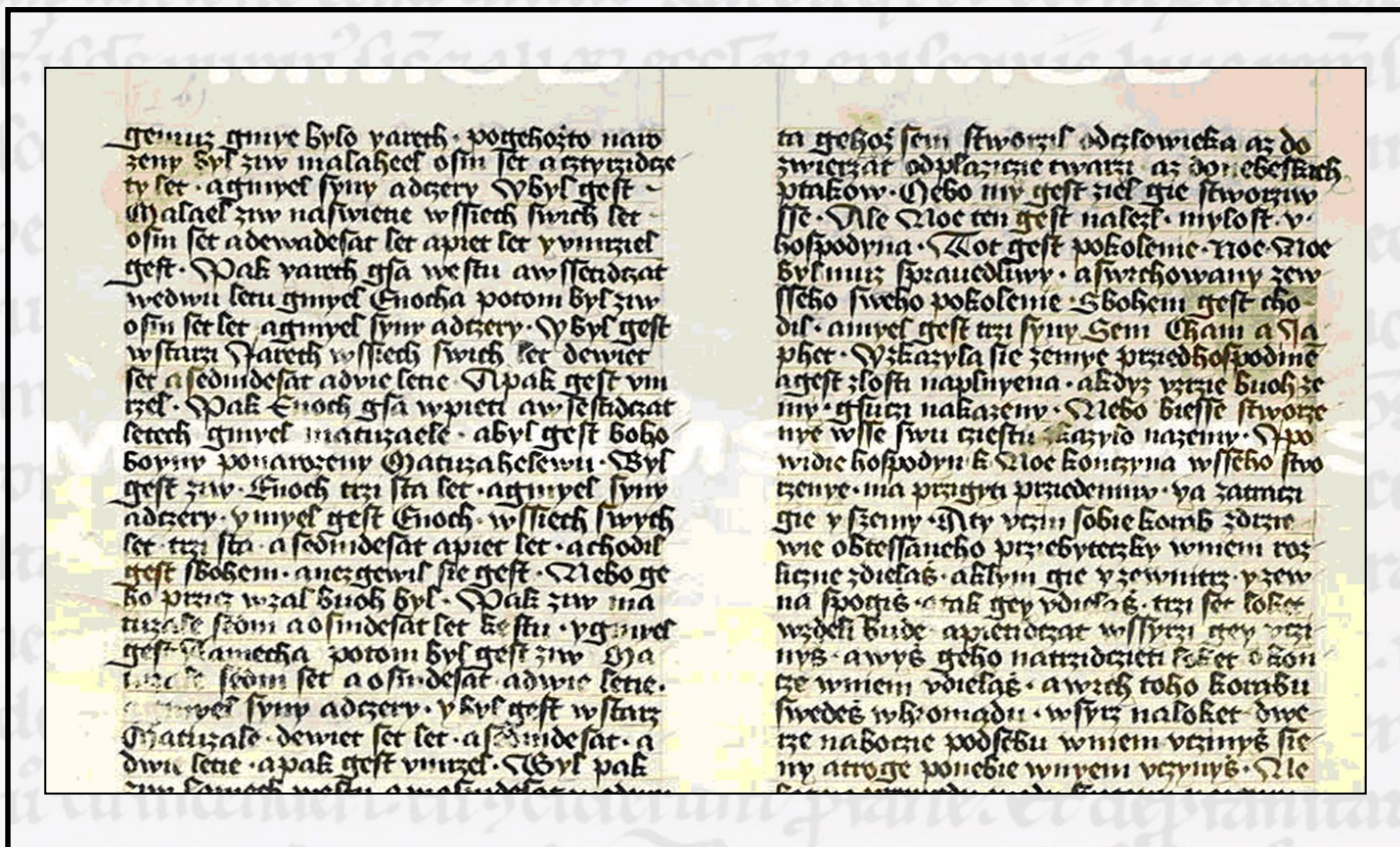 gemuz gmye bylo yareth · pogehozto naro
zeny byl ziw malaheel osm set a cztyrzidcze
ty let · agmyel syny adczery Wbyl gest
Malael ziw naswietie wssiech swich let
osm set adewadesat let apiet let y vmrziel
gest · Pak yareth gsa westu awssestidczat
wedwu letu gmyel Enocha potom byl ziw
osm set let agmyel syny adczery · Wbyl gest
wstarzi Jareth wssiech swich let dewiet
set asedmdesat advie letie Apak gest vm
rzel · Pak Enoch gsa wpieti aw sestidczat
letech gmyel matuzaele · abyl gest boho
boyny ponarozeny Matuzahelewu · Byl
gest ziw · Enoch trzi sta let · agmyel syny
adczery · ymyel gest Enoch · wssiech swych
let · trzi sta · asedmdesat apiet let · achodil
gest sbohem · anezgewil sie gest · Nebo ge
ho przicz wzal buoh byl · Pak ziw ma
tuzale sedm aosmdesat let ke stu · ygmyel
gest Lamecha potom byl gest ziw Ma
tuzale sedm set aosmdesat · adwie letie ·
agmyel syny adczery · ybyl gest wstarz
Matuzale · dewiet set let · asedmdesat · a
dwu letie · apak gest vmrzel · Byl pak
ta gehoz sem stworzil odczlowieka az do
zwierzat odplazicie twarzi az donebeskich
ptakow · Nebo my gest ziel gie stworziw
sse · Ale Noe ten gest nalezl · mylost · v ·
hospodyna · Tot gest pokolenie · noe · Noe
byl muz sprauedliwy · aswrchowany zew
sseho sweho pokolenie · Sbohem gest cho
dil · amyel gest trzi syny Sem Cham a Ja
phet · Wzkazyla sie zemye prziedhospodine
agest zlosti naplnyena · akdyz vzrzie buoh ze
my · gsuczi nakazeny · Nebo biesse stworze
nye wsse swu cziestu zkazylo nazemy · Ipo
widie hospodyn k Noe konczyna wsseho stwo
rzenye · ma przigyti prziedemnu · ya zatratzi
gie y szemy · Aty vczin sobie korab zdrzie
wie obtessaneho prziebyteczky wniem roz
liczne zdielas · aklym gie yzewnitrz · yzew
na spogis · atak gey vdielas · trzi set loket
wzdeli bude apietidczat wssyrzi gey vczi
nys · awys geho natrzidczieti loket okon
cze wniem vdielas · awrch toho korabu
swedes whromadu · wsyrz naloket dwe
rze naboczie podsebu wniem vczinys sie
ny atroge ponebie wnyem vczynys · Ale